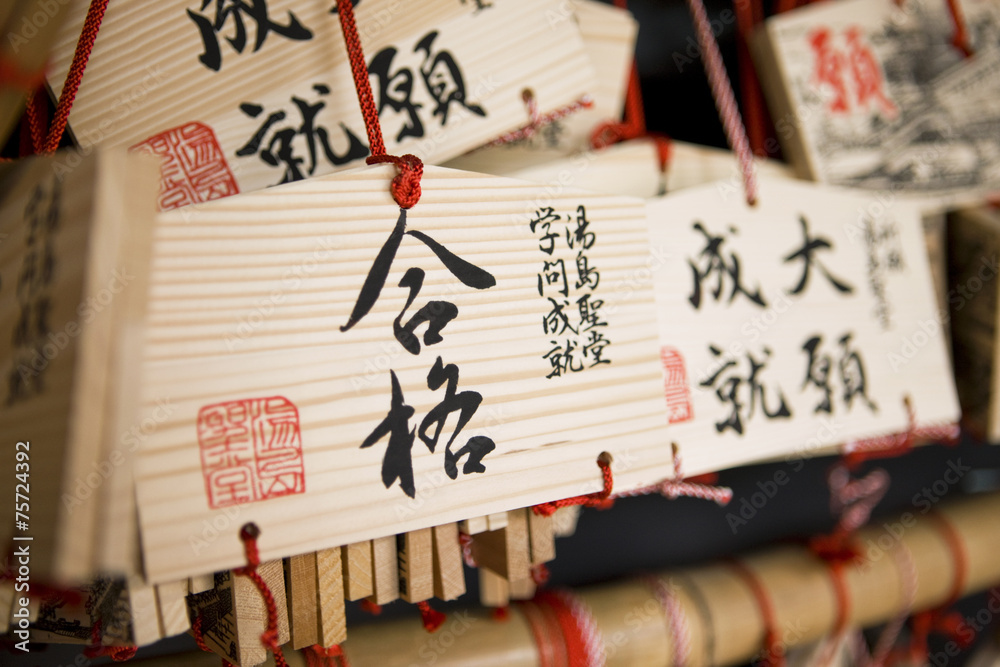 成
願
就
願
合格
湯島聖堂
学問成就
湯島聖堂
大願
成就
Adobe Stock | #75724392